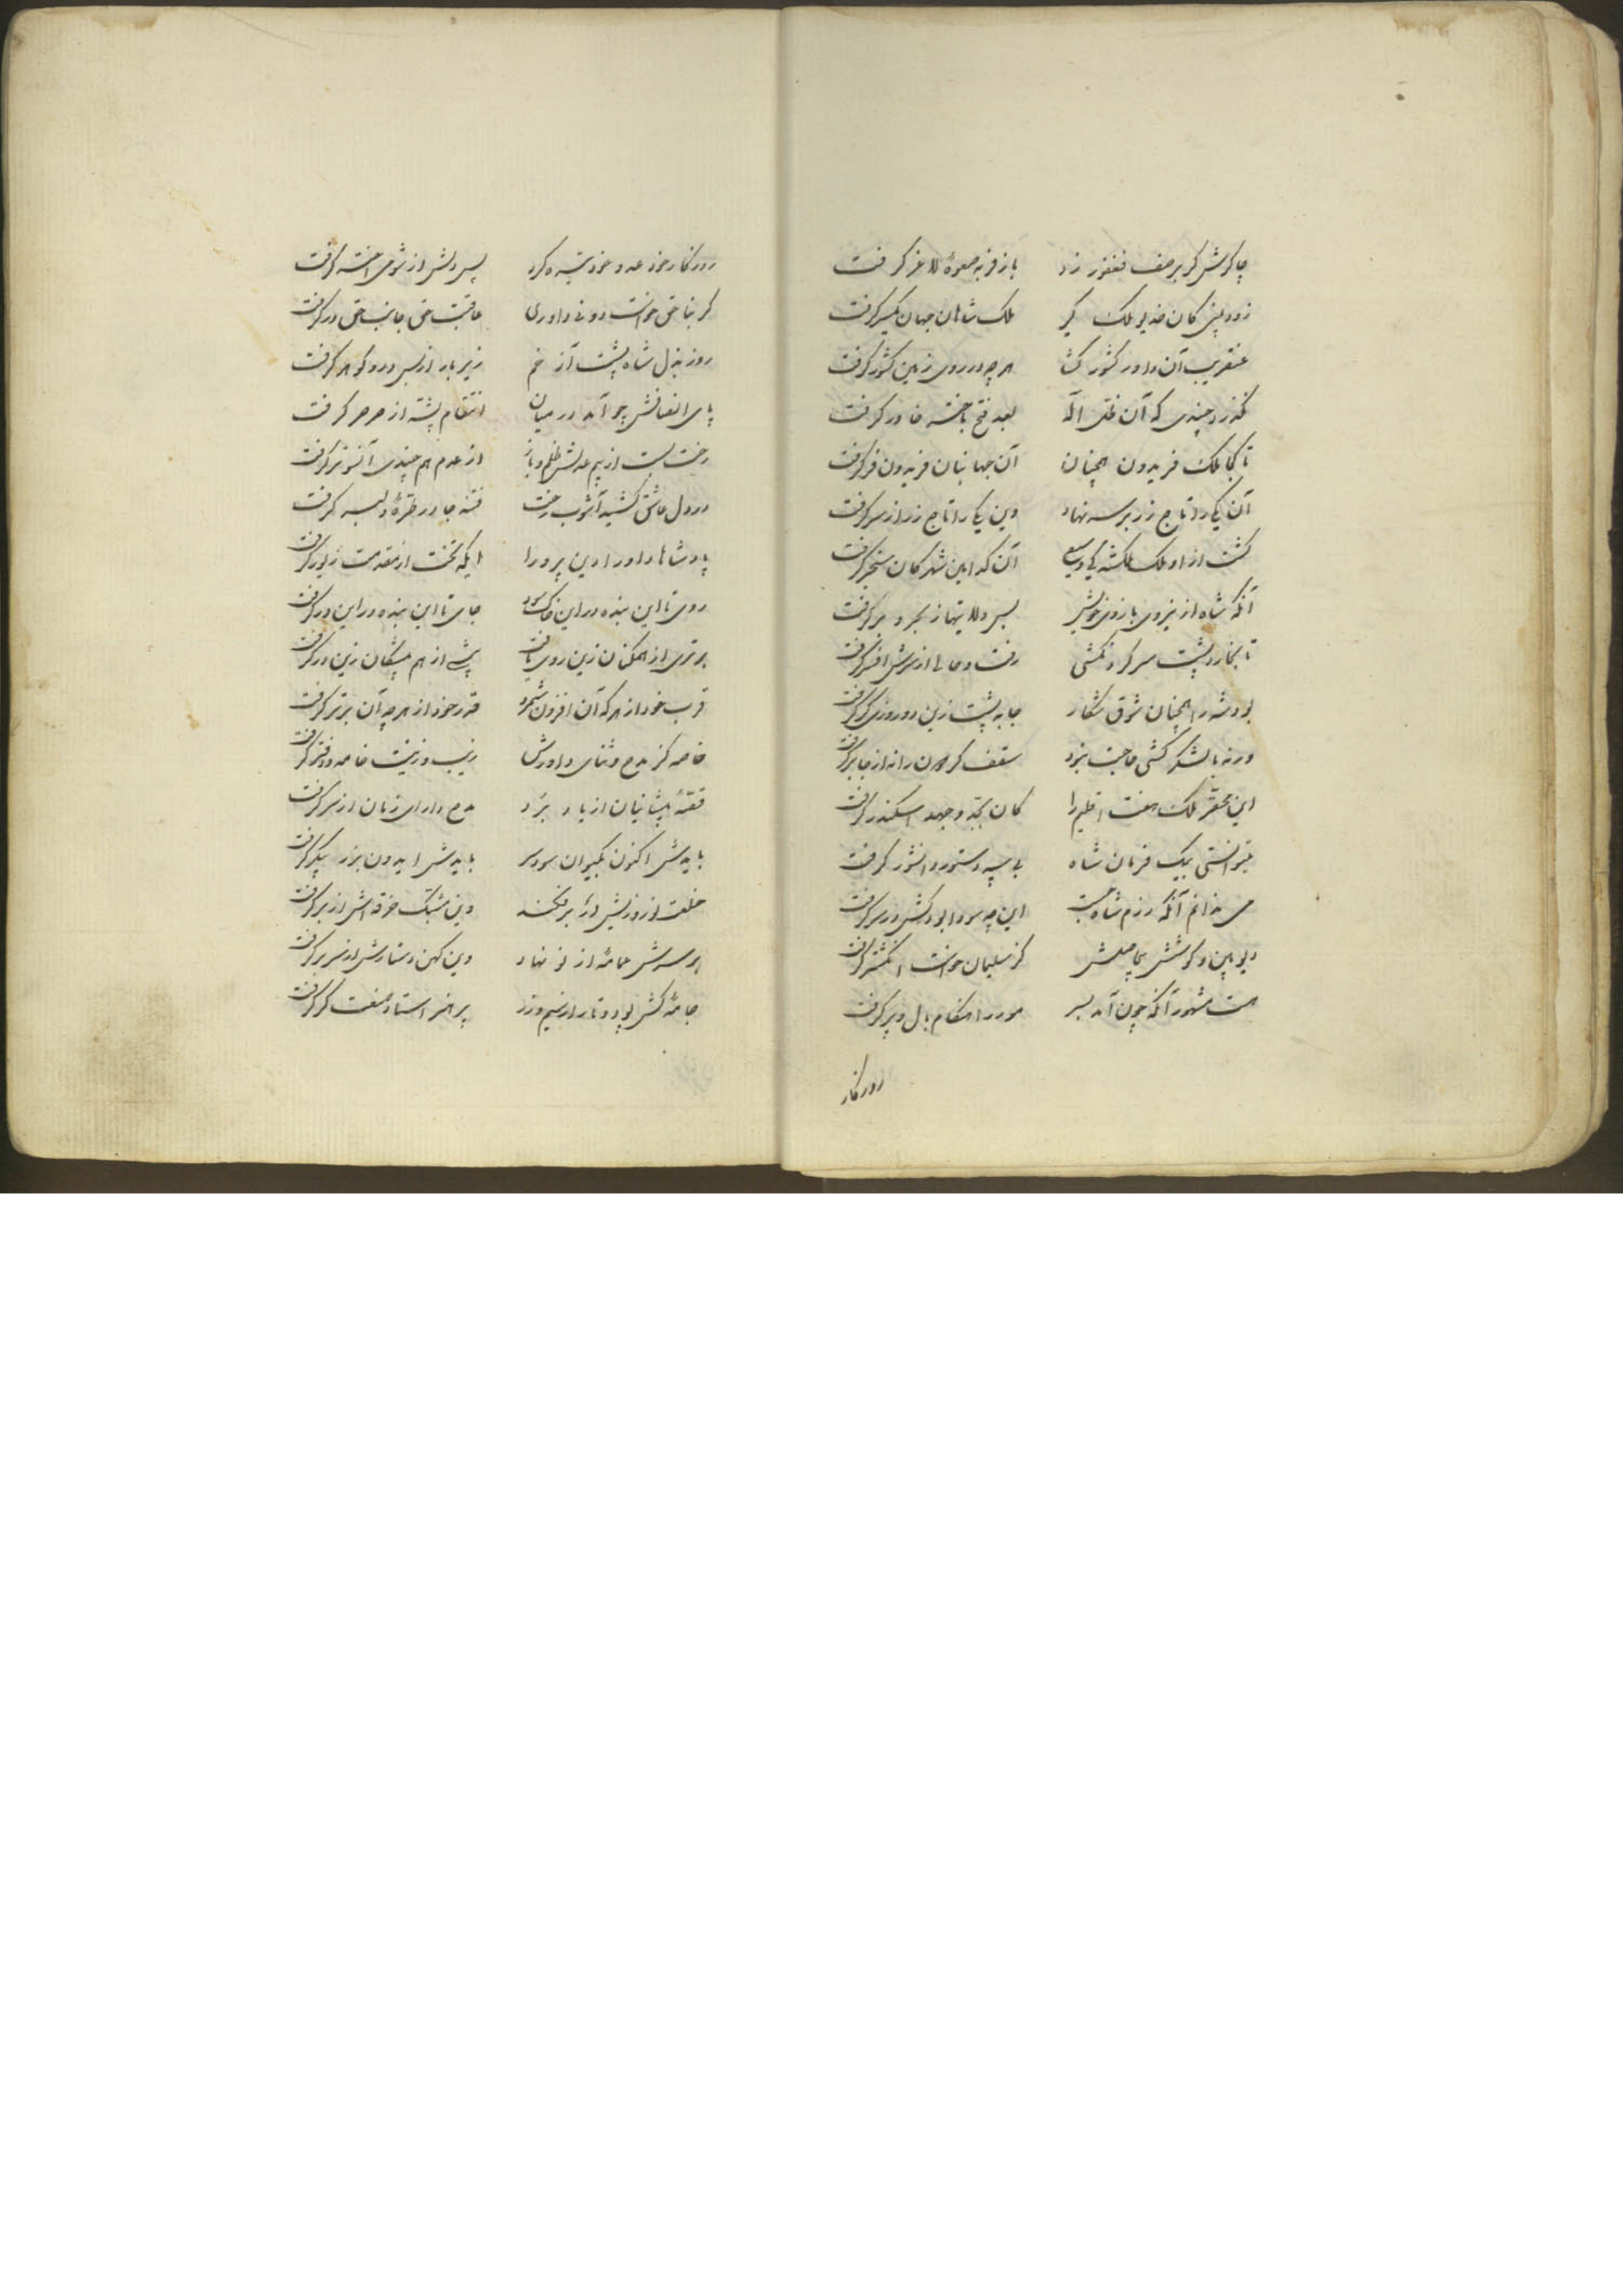 چاکرش گر بر صف فغفور زد باز فربه صعوهٔ لاغر گرفت
زود بینی کان خدیو ملک گیر ملک شاهان جهان یکسر گرفت
عنقریب آن داور کشور گشا هر چه در روی زمین کشور گرفت
نگذرد چندی که آن ظل اله بعد فتح باختر خاور گرفت
تا کجا ملک فریدون همچنان آن جهانبان فریدون فر گرفت
آن یکی را تاج زر بر سر نهاد وین یکی را تاج زر از سر گرفت
گشت از او ملک ملکشه کی وسیع آن که این شهر کان سنجر گرفت
آنکه شاه از نیروی بازوی خویش بس ولایتها ز بحر و بر گرفت
تا بخارد پشت سر گردنکشی رفت و حالی از سرش افسر گرفت
بود شه را همچنان شوق شکار جا به پشت زین دو روزی گر گرفت
ورنه با لشکر کشی حاجت نبرد سقف گردون را نه از جا بر گرفت
این محقر ملک هفت اقلیم را کان بجد و جهد اسکندر گرفت
بتوانستی بیک فرمان شاه بی سپه دستور دانشور گرفت
می ندانم آنکه رزم شاه جست این چه سودا بود کش در سر گرفت
دیو بین و کوشش بیحاصلش کز سلیمان خواست انگشتر گرفت
هست مشهور آنکه چون آمد بسر مور را هنگام بال و پر گرفت
روزگار
روزگار خود عدو خود تیره کرد پس دلش از شومی اختر گرفت
گر بناحق خواست دونی داوری عاقبت حق جانب حق در گرفت
روز بذل شاه پشت آز خم زیر بار از بس در و گوهر گرفت
پای انصافش چو آمد در میان انتقام پشه از صرصر گرفت
رخت بست از بیم عدلش ظلم و باز از عدم هم چندی آنسوتر گرفت
در دل عاشق کشید آشوب رخت فتنه جا در طرهٔ دلبر گرفت
پادشاها داورا دین پرورا ایکه تخت از مقدمت زیور گرفت
روی تا این بنده در این خاک سود جای تا این بنده در این در گرفت
برتری از همگنان زین روی یافت پیشی از هم پیشگان زین در گرفت
قرب خود از هر که آن افزون شمرد قدر خود از هر چه آن برتر گرفت
خاصه کز مدح و ثنای داورش زیب و زینت خامه و دفتر گرفت
قصهٔ پیشانیان از یاد برد مدح دارای زمان از سر گرفت
بایدش اکنون بکیوان سود سر بایدش ایدون بزر پیکر گرفت
خلعت نوروزیش در بر فکند وین مشبک خرقه اش از بر گرفت
بر سرش عمامه از نو نهاد وین کهن دستارش از سر بر گرفت
جامهٔ کش پود و تار از سیم و زر پر هنر استاد صنعت گر گرفت